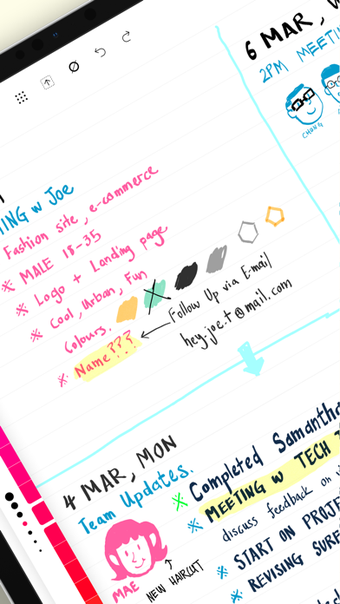 6 MAR,
2PM MEETIN
CHUNG
ING w Joe
Fashion site, e-commerce
※ MALE 18-35
※ Logo + Landing page
※ Cool, Urban, Fun
Colours.
※ Name???
Follow Up via E-mail
hey.joe.t@mail.com
4 MAR, MON
Team Updates.
MAE
NEW HAIRCUT
※ Completed Samantha
※ MEETING w TECH
discuss feedback on
※ START ON PROJE
※ REVISING SURE